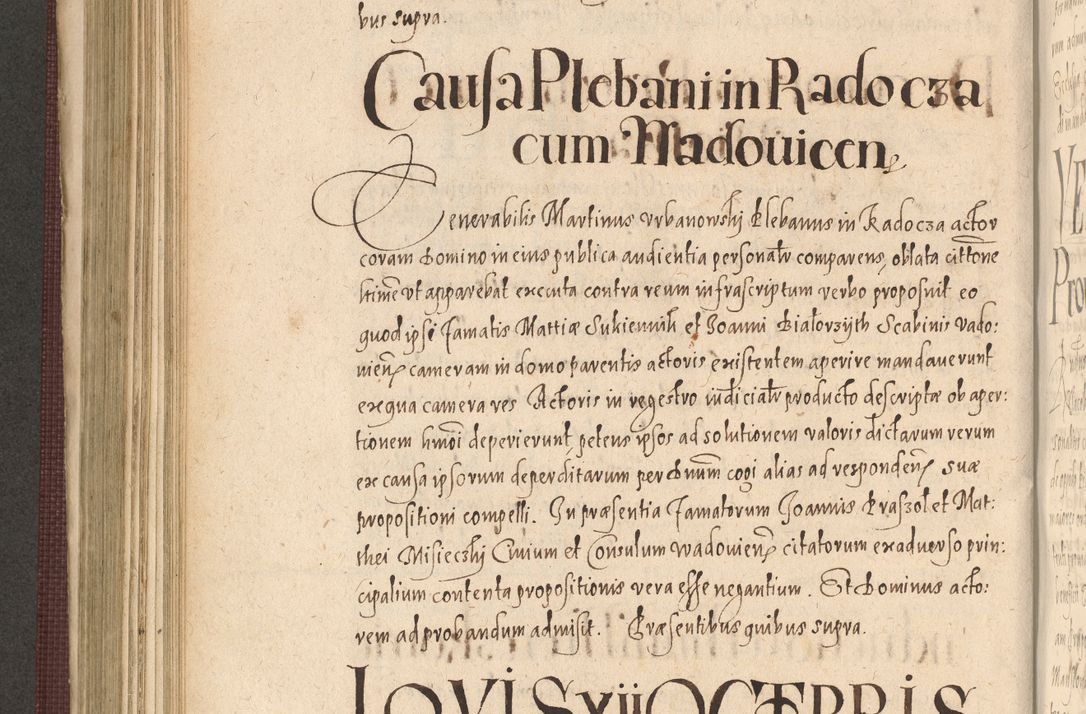 bus supra.
Causa Plebani in Radocza
cum Wadouicen
Venerabilis Martinus Vrbanowskj Plebanus in Radocza actor
coram Domino in eius publica audientia personalr comparens, oblata cittone
ut apparebat executa contra reum infrascriptum verbo proposuit eo
quod ipsi famatis Mattiæ et Joanni Scabinis Vado:
uien cameram in domo parentis actoris existentem aperire mandauerunt
ex qua camera res Actoris in regestro iudicialr producto descriptæ ob aper:
tionem hmoi deperierunt, petens ipsos ad solutionem valoris dictarum rerum
ex causa ipsorum deperditarum per Dnum cogi alias ad responden suæ
propositioni compelli. In præsentia famatorum Joannis Kraszol et Mat:
thei Misieczkj Ciuium et Consulum wadouien citatorum ex aduerso prin:
cipalium contenta propositionis vera esse negantium. Et Dominus acto:
rem ad probandum admisit. Præsentibus quibus supra.
IOVIS XII OCTEBRIS